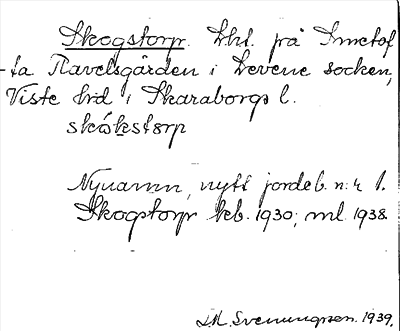 Skogstorp. Lht. på Smetof
ta Ravelsgården i Levene socken,
Viste hrd i Skaraborgs l.
skökstorp
Nynamn, nytt jordeb. n:r 1.
Skogstorp kb. 1930; ml. 1938
L.M. Svenungsson. 1939.